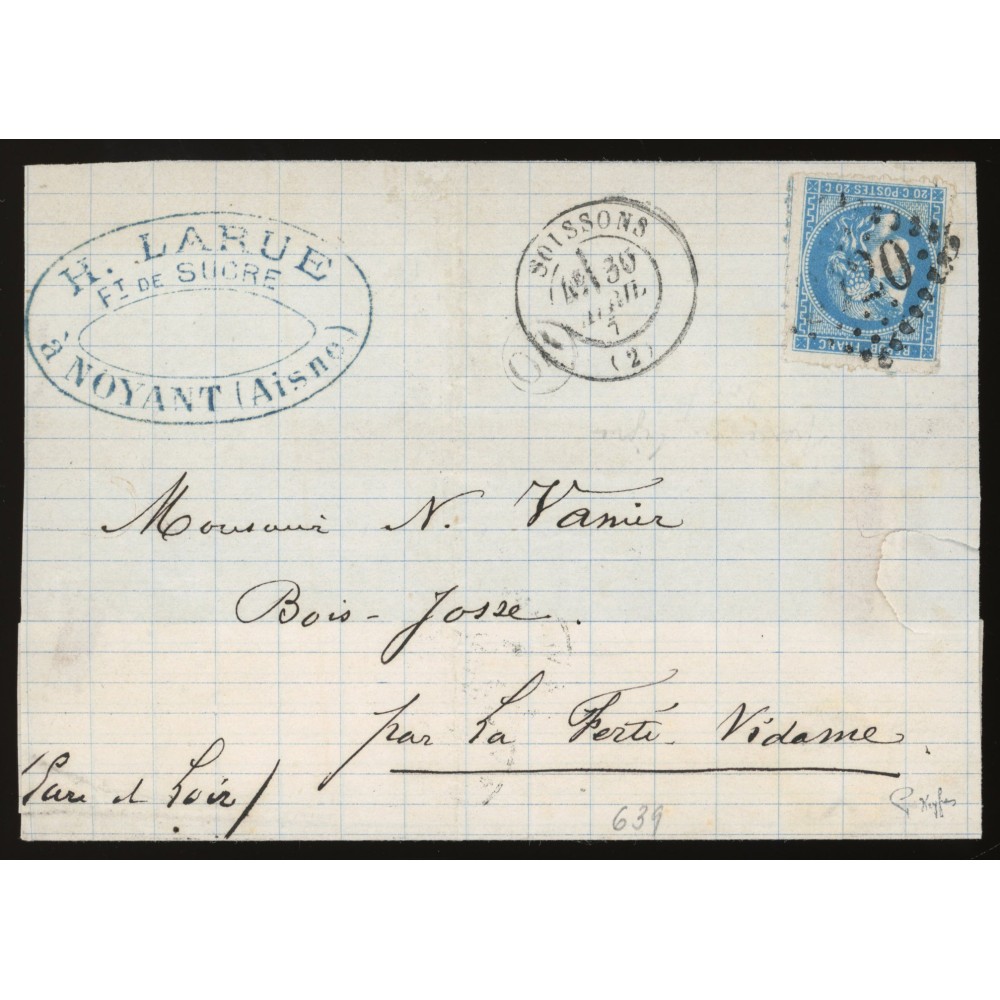 H. LARUE
FT DE SUCRE
à NOYANT (Aisne)
SOISSONS
30
AVRIL
(2)
OL
20 C POSTES 20 C
REPUB. FRANC
20
Monsieur N. Vanier
Bois-Josse.
par La Ferté-Vidame
(Eure et Loir)
639